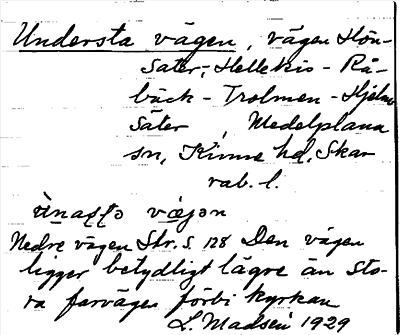 Understa vägen, vägen Hön-
säter, Hellekis - Rå-
bäck - Trolmen - Hjelm
säter, Medelplana
sn, Kinne hd. Skar
rab. l.
Nedre vägen Str. s. 128 Den vägen
ligger betydligt lägre än sto-
ra farvägen förbi kyrkan
L. Madsén 1929